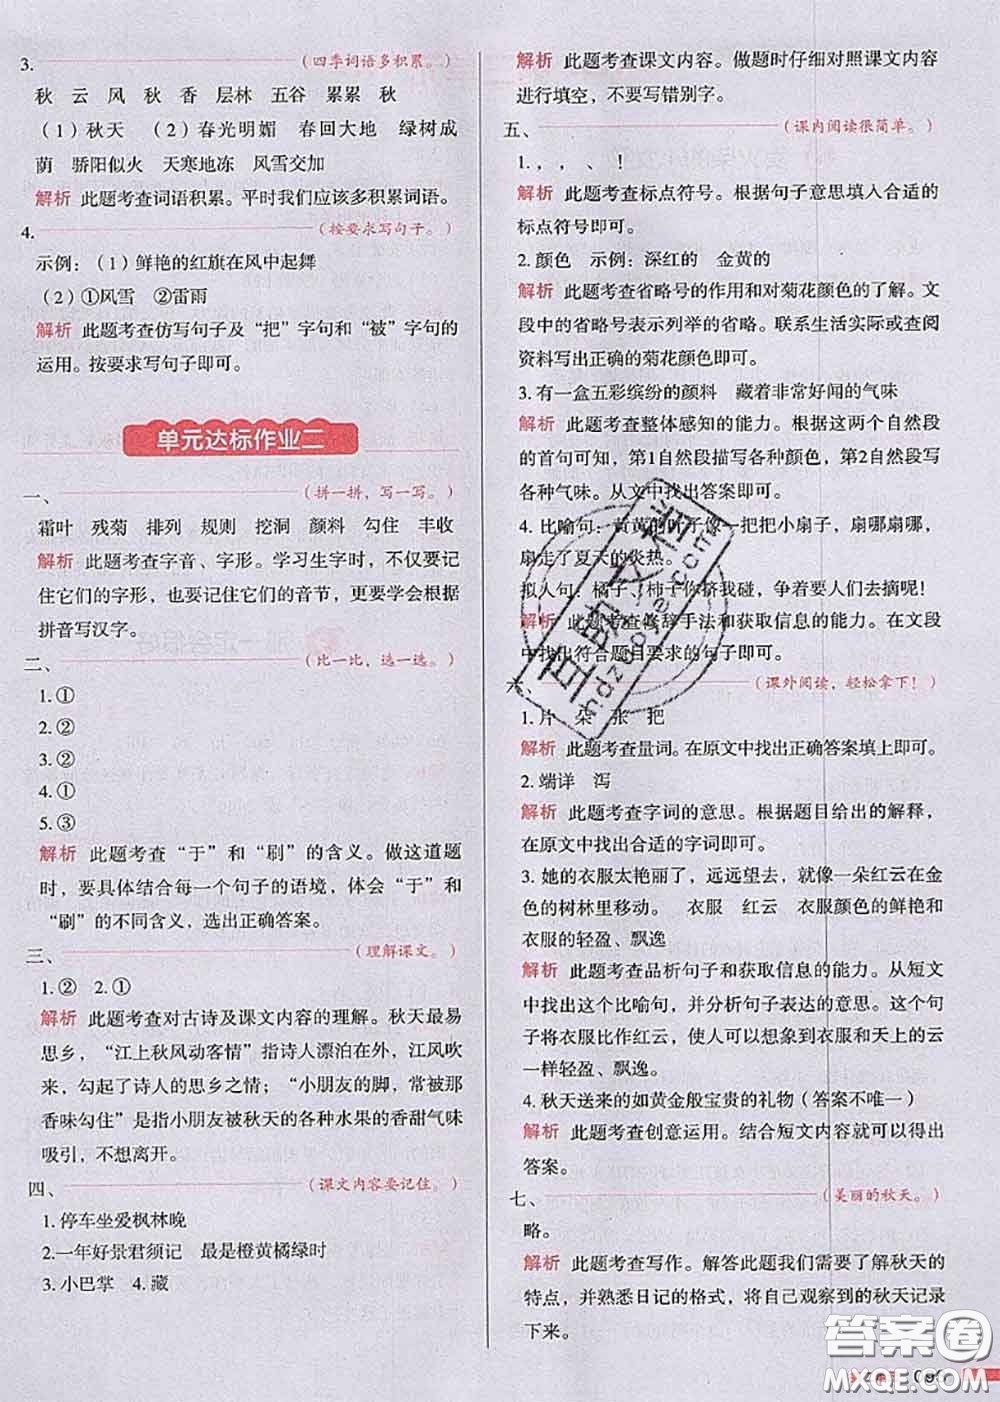 3.（四季词语多积累。）
秋　云　风　秋　香　层林　五谷　累累　秋
（1）秋天　（2）春光明媚　春回大地　绿树成
荫　骄阳似火　天寒地冻　风雪交加
解析　此题考查词语积累。平时我们应该多积累词语。
4.（按要求写句子。）
示例：（1）鲜艳的红旗在风中起舞
（2）①风雪　②雷雨
解析　此题考查仿写句子及“把”字句和“被”字句的
运用。按要求写句子即可。
单元达标作业二
一、（拼一拼，写一写。）
霜叶　残菊　排列　规则　挖洞　颜料　勾住　丰收
解析　此题考查字音、字形。学习生字时，不仅要记
住它们的字形，也要记住它们的音节，更要学会根据
拼音写汉字。
二、（比一比，选一选。）
1. ①
2. ②
3. ②
4. ①
5. ③
解析　此题考查“于”和“刷”的含义。做这道题
时，要具体结合每一个句子的语境，体会“于”和
“刷”的不同含义，选出正确答案。
三、（理解课文。）
1. ②　2. ①
解析　此题考查对古诗及课文内容的理解。秋天最易
思乡，“江上秋风动客情”指诗人漂泊在外，江风吹
来，勾起了诗人的思乡之情；“小朋友的脚，常被那
香味勾住”是指小朋友被秋天的各种水果的香甜气味
吸引，不想离开。
四、（课文内容要记住。）
1. 停车坐爱枫林晚
2. 一年好景君须记　最是橙黄橘绿时
3. 小巴掌　4. 藏
解析　此题考查课文内容。做题时仔细对照课文内容
进行填空，不要写错别字。
五、（课内阅读很简单。）
1. ，，、、！
解析　此题考查标点符号。根据句子意思填入合适的
标点符号即可。
2. 颜色　示例：深红的　金黄的
解析　此题考查省略号的作用和对菊花颜色的了解。文
段中的省略号表示列举的省略。联系生活实际或查阅
资料写出正确的菊花颜色即可。
3. 有一盒五彩缤纷的颜料　藏着非常好闻的气味
解析　此题考查整体感知的能力。根据这两个自然段
的首句可知，第1自然段描写各种颜色，第2自然段写
各种气味。从文中找出答案即可。
4. 比喻句：黄黄的叶子像一把把小扇子，扇哪扇哪，
扇走了夏天的炎热。
拟人句：橘子、柿子你挤我碰，争着要人们去摘呢！
解析　此题考查修辞手法和获取信息的能力。在文段
中找出符合题目要求的句子即可。
六、（课外阅读，轻松拿下！）
1. 片　朵　张　把
解析　此题考查量词。在原文中找出正确答案填上即可。
2. 端详　泻
解析　此题考查字词的意思。根据题目给出的解释，
在原文中找出合适的字词即可。
3. 她的衣服太艳丽了，远远望去，就像一朵红云在金
色的树林里移动。　衣服　红云　衣服颜色的鲜艳和
衣服的轻盈、飘逸
解析　此题考查品析句子和获取信息的能力。从短文
中找出这个比喻句，并分析句子表达的意思。这个句
子将衣服比作红云，使人可以想到衣服和天上的云
一样轻盈、飘逸。
4. 秋天送来的如黄金般宝贵的礼物（答案不唯一）
解析　此题考查创意运用。结合短文内容就可以得出
答案。
七、（美丽的秋天。）
略。
解析　此题考查写作。解答此题我们需要了解秋天的
特点，并熟悉日记的格式，将自己观察到的秋天记录
下来。
互助文档
hdzuoye.com
答案圈